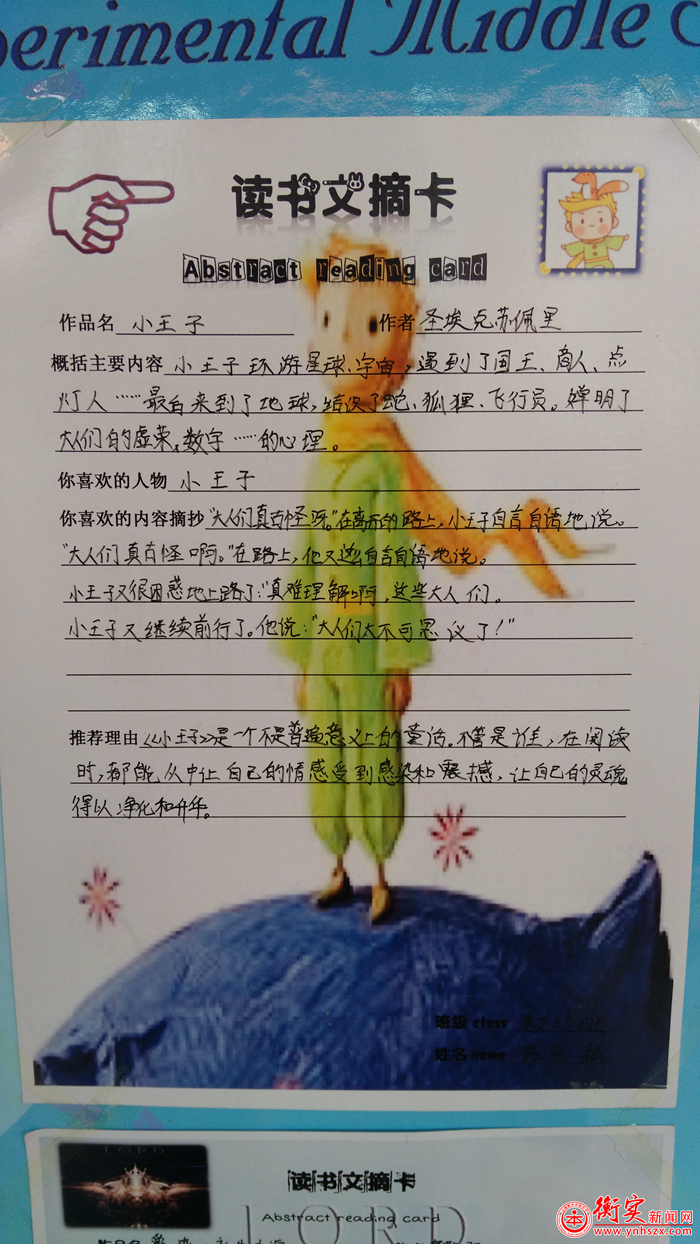 perimental Middle S
读书文摘卡
Abstract reading card
作品名 小王子 作者 圣埃克苏佩里
概括主要内容 小王子环游星球、宇宙,遇到了国王、商人、点
灯人……最后来到了地球,结识了蛇、狐狸、飞行员。婵明了
大人们的虚荣,数字……的心理。
你喜欢的人物 小王子
你喜欢的内容摘抄 “大人们真奇怪呀。”在离开的路上,小王子自言自语地说。
“大人们真奇怪啊。”在路上,他又这么自言自语地说。
小王子又很困惑地上路了:“真难理解啊,这些大人们。
小王子又继续前行了。他说:“大人们太不可思议了!”
推荐理由 《小王子》是一个不是普遍意义上的童话。不管是谁,在阅读
时,都能从中让自己的情感受到感染和震撼,让自己的灵魂
得以净化和升华。
班级 class
姓名 name
LORD
读书文摘卡
Abstract reading card
LORD
作品名
衡实新闻网
www.ynhszx.com